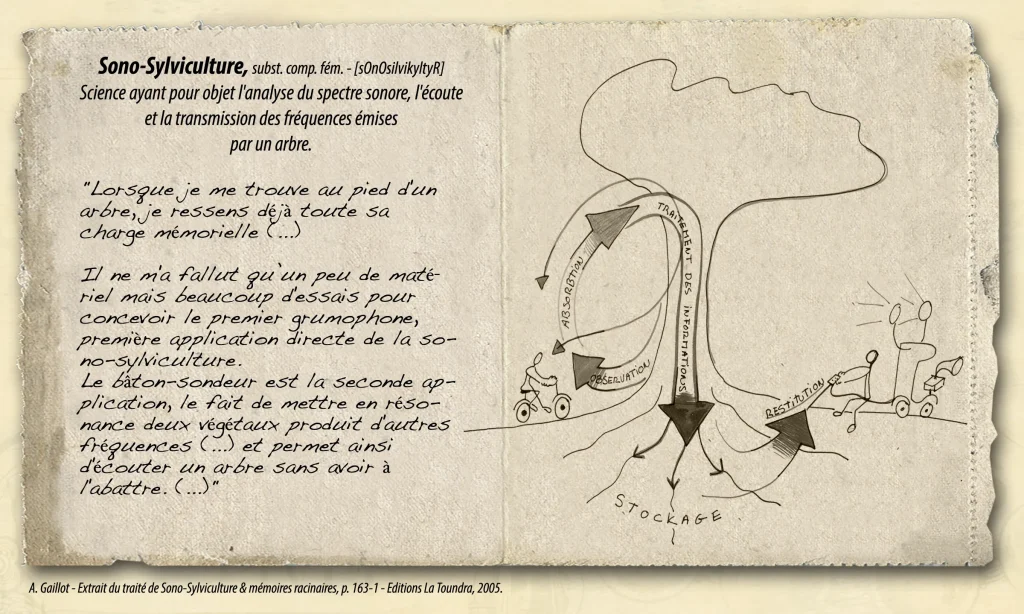 Sono-Sylviculture, subst. comp. fém. - [sOnOsilvikyltyR]
Science ayant pour objet l'analyse du spectre sonore, l'écoute
et la transmission des fréquences émises
par un arbre.
"Lorsque je me trouve au pied d'un
arbre, je ressens déjà toute sa
charge mémorielle (...)
Il ne m'a fallut qu'un peu de maté-
riel mais beaucoup d'essais pour
concevoir le premier grumophone,
première application directe de la so-
no-sylviculture.
Le bâton-sondeur est la seconde ap-
plication, le fait de mettre en réso-
nance deux végétaux produit d'autres
fréquences (...) et permet ainsi
d'écouter un arbre sans avoir à
l'abattre. (...)"
TRAITEMENT DES INFORMATIONS
ABSORBTION
OBSERVATION
RESTITUTION
STOCKAGE
A. Gaillot - Extrait du traité de Sono-Sylviculture & mémoires racinaires, p. 163-1 - Editions La Toundra, 2005.